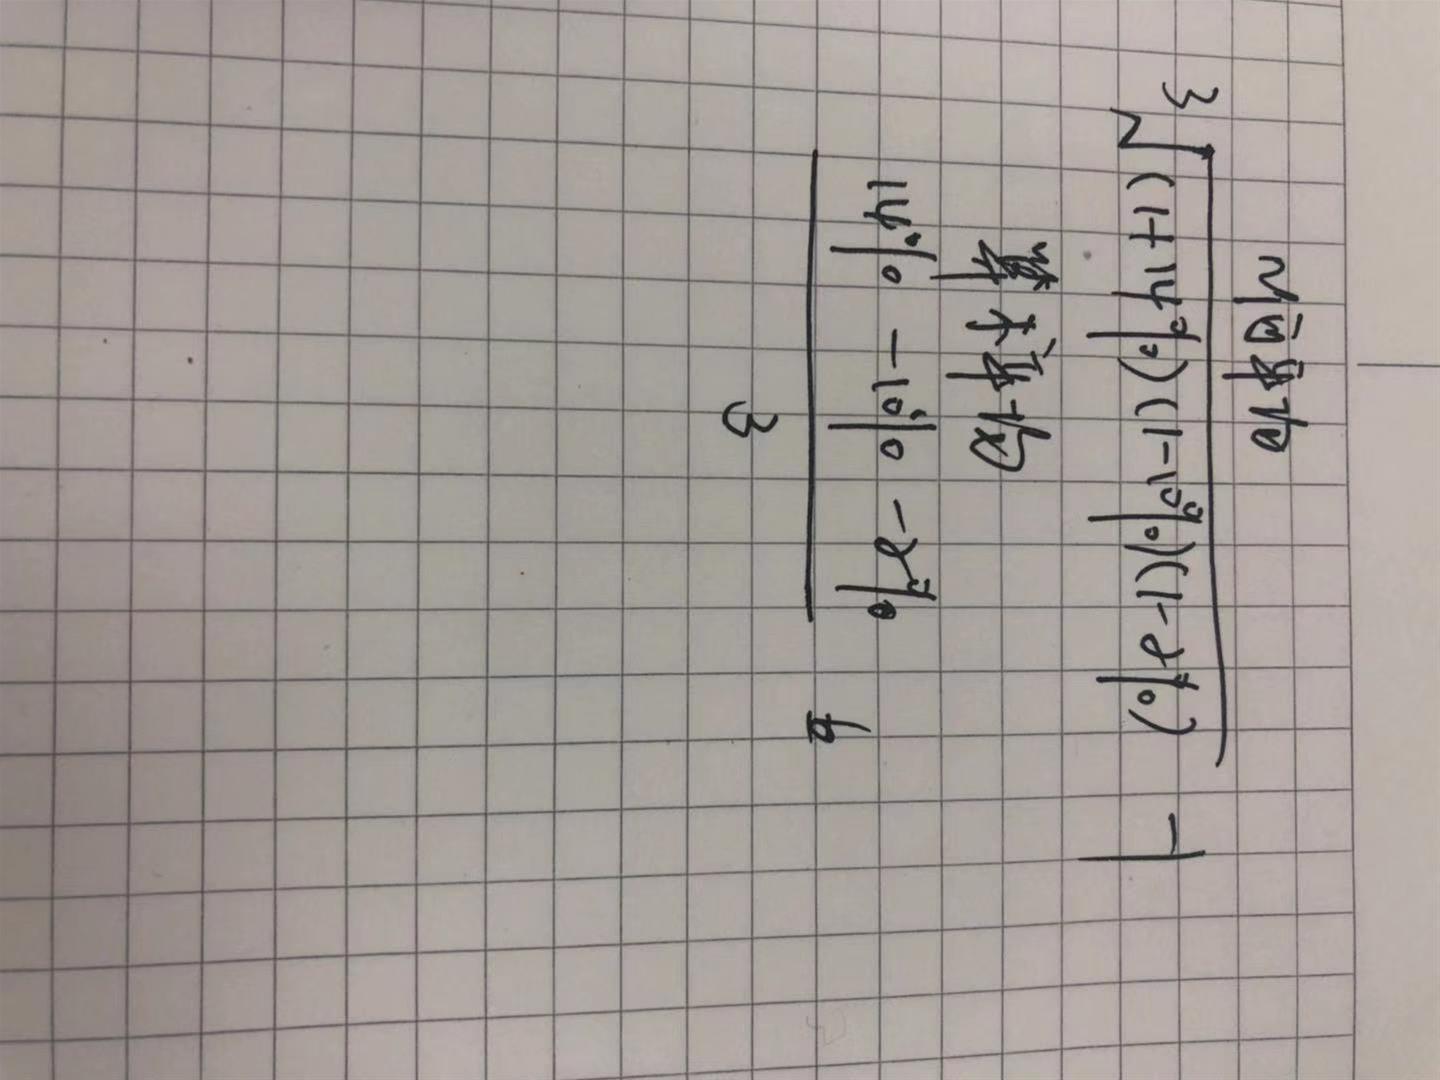 几何平均
³√(1+14%)(1-10%)(1-8%) -1
算术平均
14% - 10% - 8%
3